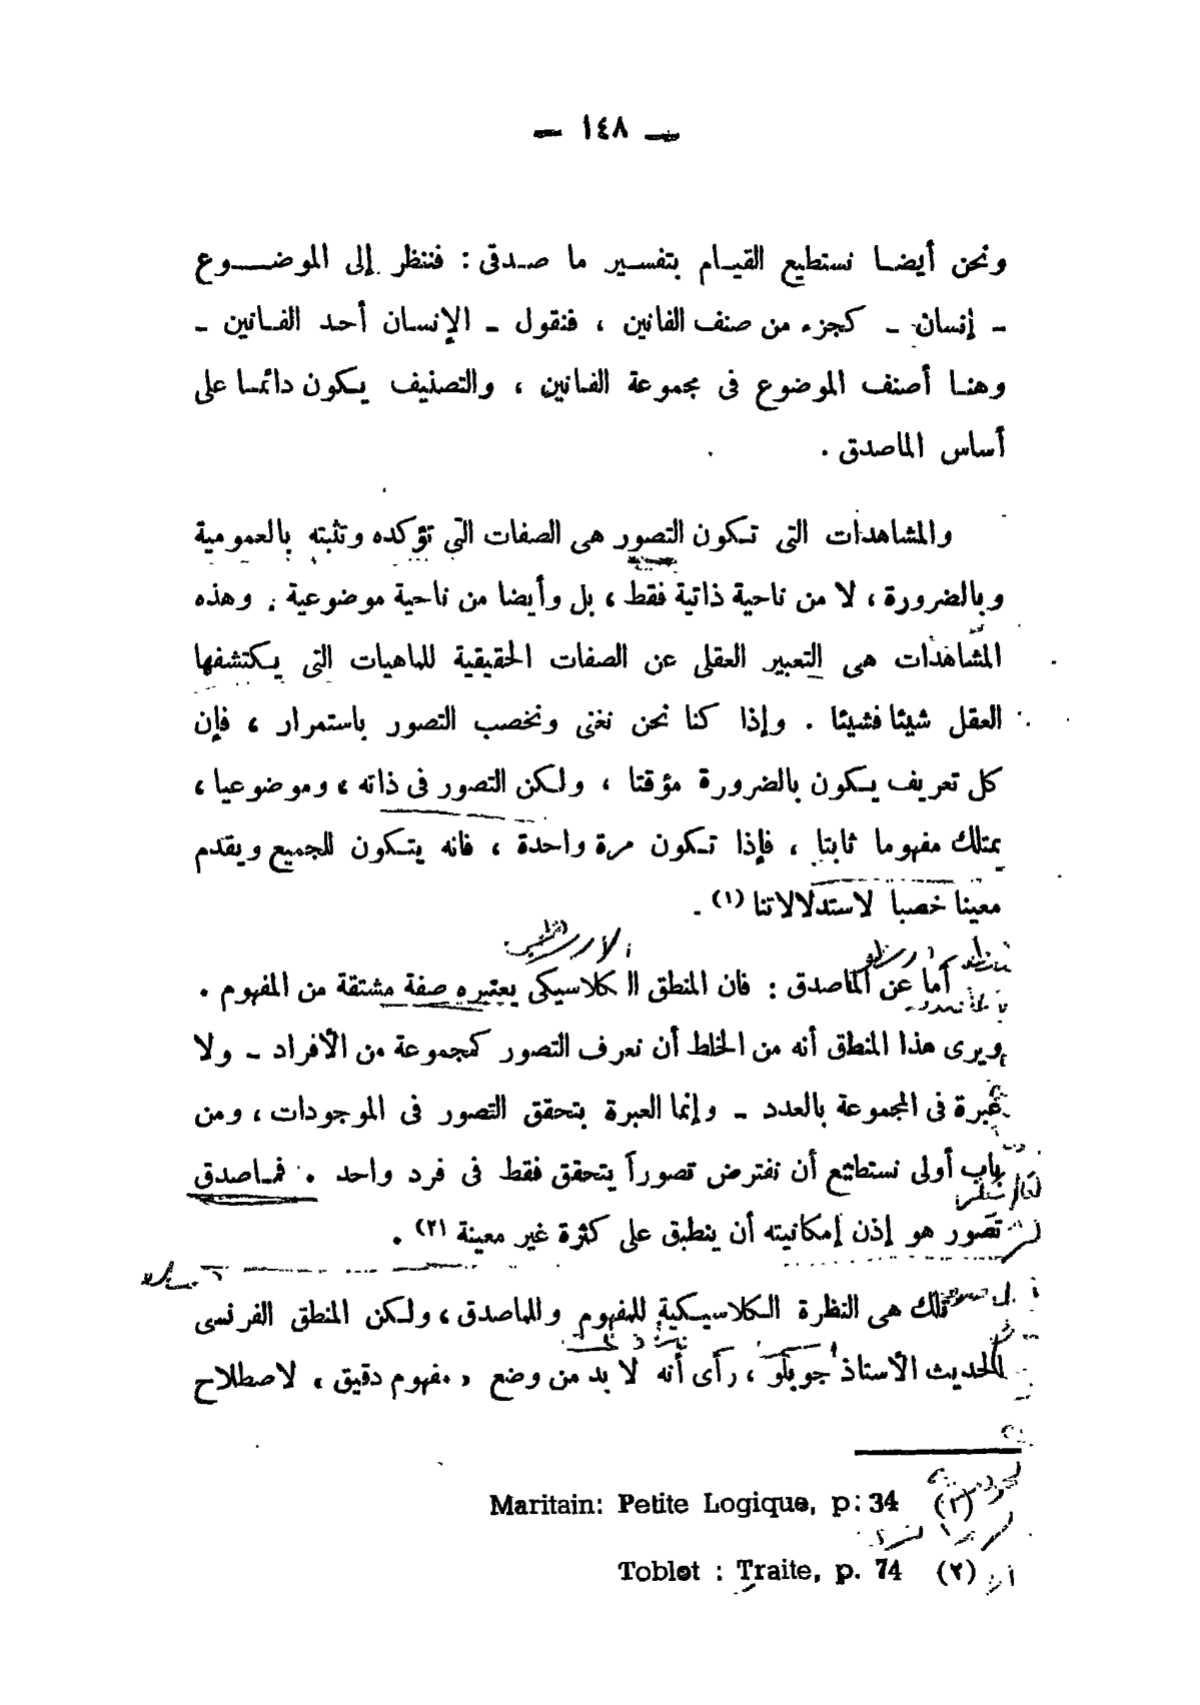 — ١٤٨ —
ونحن أيضا نستطيع القيام بتفسير ما صدقى : فننظر إلى الموضوع
- إنسان - كجزء من صنف الفانين ، فنقول - الإنسان أحد الفانين -
وهنا أصنف الموضوع فى مجموعة الفانين ، والتصنيف يكون دائما على
أساس الماصدق .
والمشاهدات التى تكون التصور هى الصفات التى تؤكده وتثبته بالعمومية
وبالضرورة ، لا من ناحية ذاتية فقط ، بل وأيضا من ناحية موضوعية . وهذه
المشاهدات هى التعبير العقلى عن الصفات الحقيقية للماهيات التى يكتشفها
العقل شيئا فشيئا . وإذا كنا نحن نغنى ونخصب التصور باستمرار ، فإن
كل تعريف يكون بالضرورة مؤقتا ، ولكن التصور فى ذاته ، وموضوعيا ،
يمتلك مفهوما ثابتا ، فإذا تكون مرة واحدة ، فانه يتكون للجميع ويقدم
معينا خصبا لاستدلالاتنا (١) .
أما عن الماصدق : فان المنطق الكلاسيكى يعتبره صفة مشتقة من المفهوم .
ويرى هذا المنطق أنه من الخلط أن نعرف التصور كمجموعة من الأفراد - ولا
عبرة فى المجموعة بالعدد - وإنما العبرة بتحقق التصور فى الموجودات ، ومن
باب أولى نستطيع أن نفترض تصوراً يتحقق فقط فى فرد واحد . فماصدق
تصور هو إذن إمكانيته أن ينطبق على كثرة غير معينة (٢) .
تلك هى النظرة الكلاسيكية للمفهوم وللماصدق ، ولكن المنطق الفرنسى
الحديث الأستاذ جوبلو ، رأى أنه لا بد من وضع « مفهوم دقيق » لاصطلاح
(١) Maritain: Petite Logique, p: 34
(٢) Toblot : Traite, p. 74